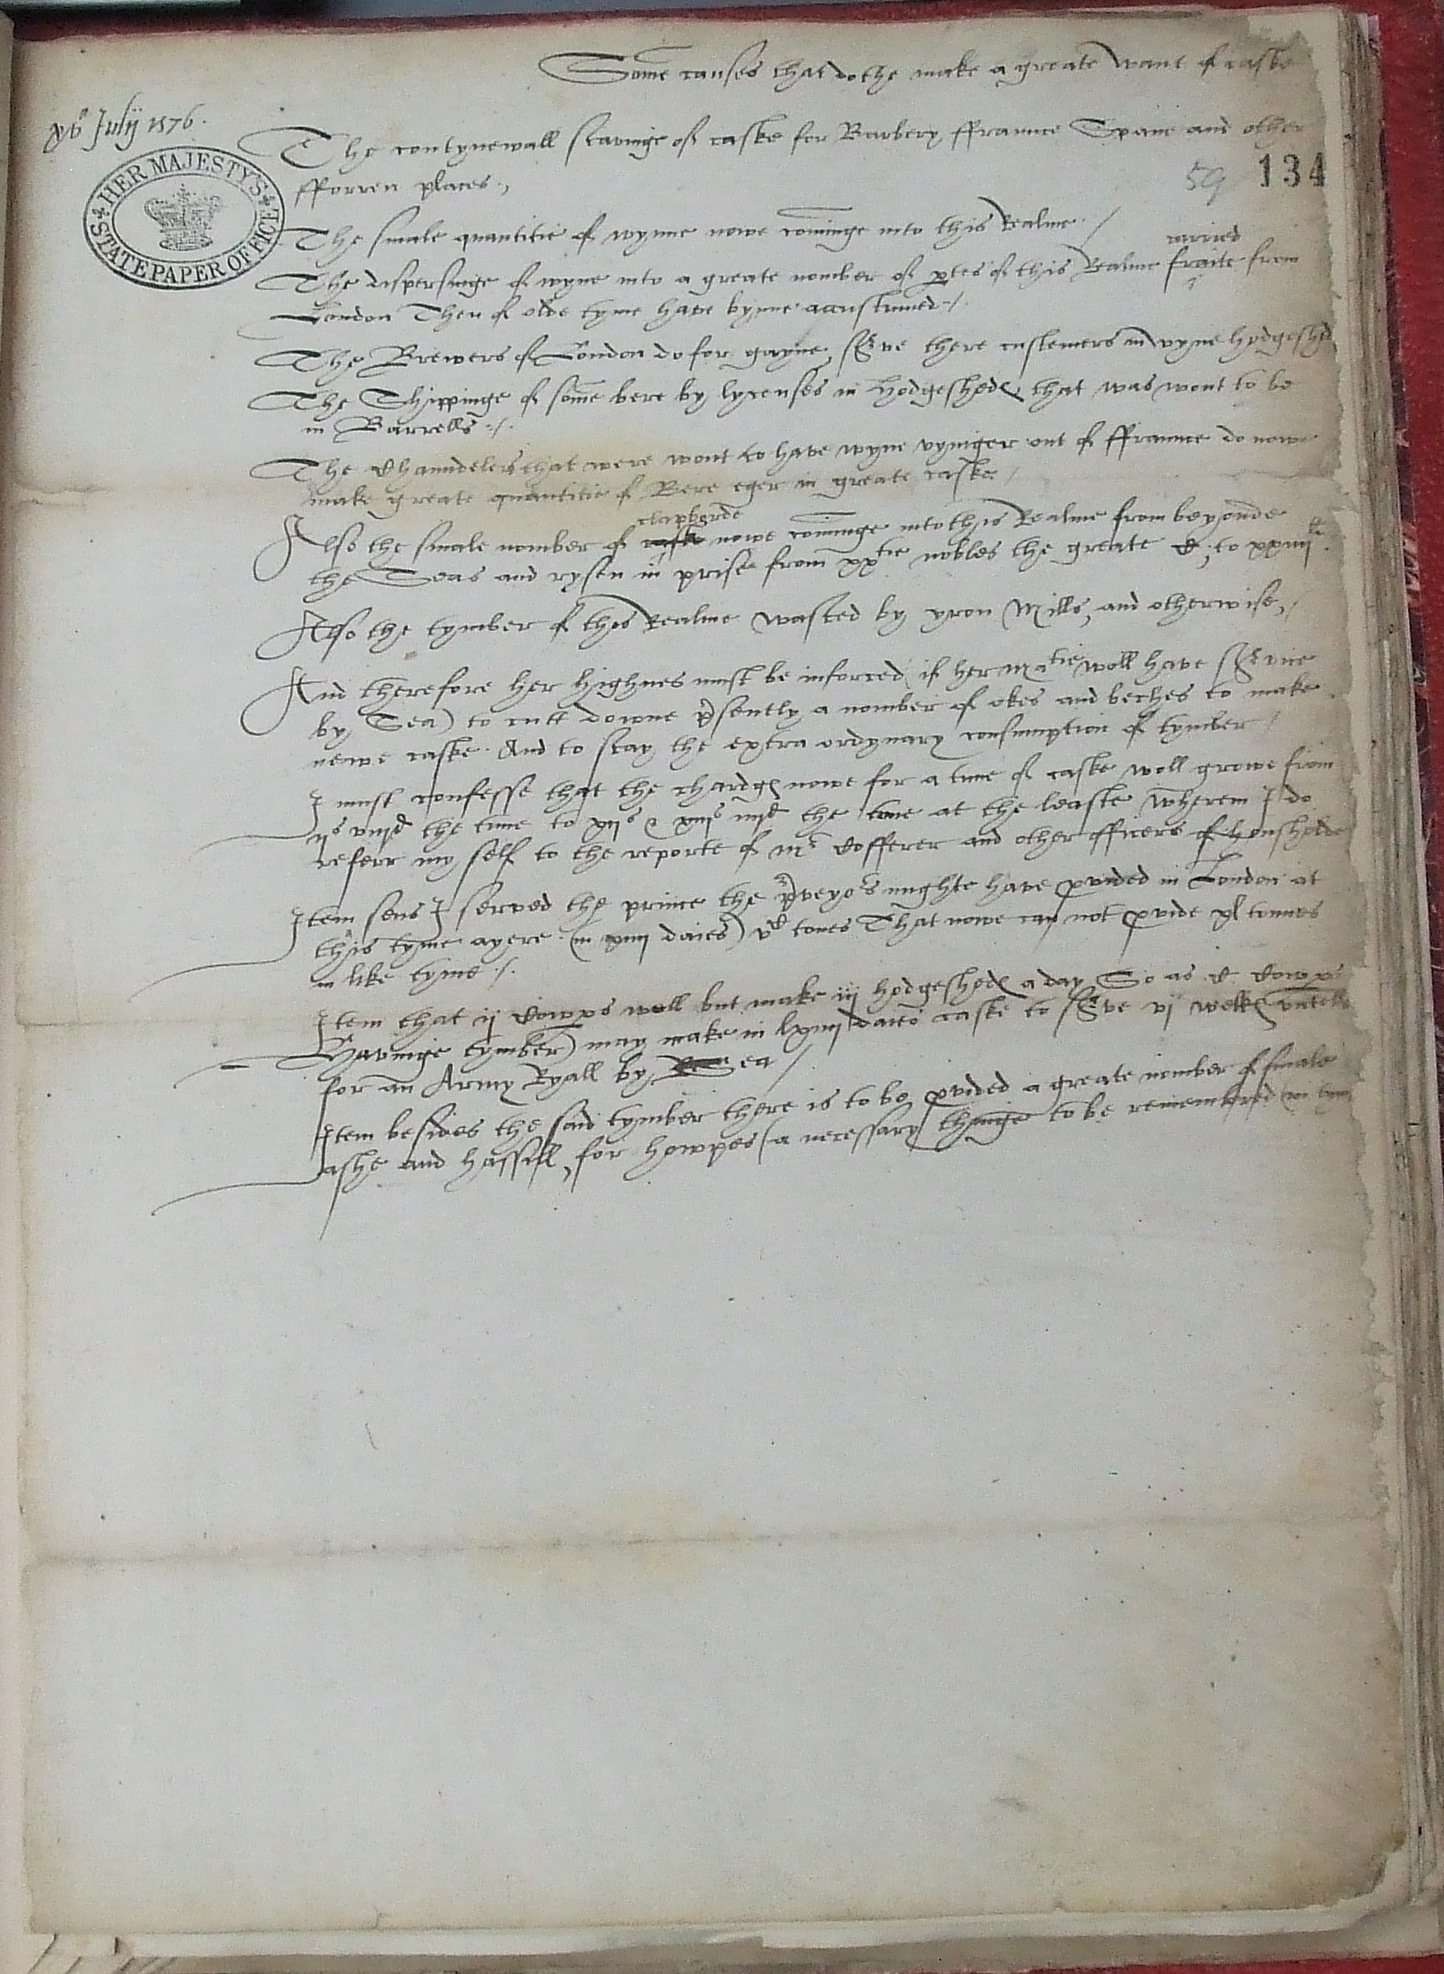 Some causes that dothe make a greate want of caske
xvº Julij 1576.
The contynewall scavinge of caske for Barbery ffraunce Spaine and other
fforren places.,
59 134
HER MAJESTY'S STATE PAPER OFFICE
The smale quantitie of wyne nowe cominge into this Realme ·/
carried
The dispersinge of wyne into a greate nomber of ptes of this Realme from
London Then of olde tyme have byne accustumed ·/.
The Brewers of London do for gayne, sve there custemers in wyne hodgeshed
The Shippinge of some bere by lycenses in Hodgeshed that was wont to be
in Barrells ·/.
The Chaundelers that were wont to have wyne vyniger out of ffraunce do nowe
make greate quantitie of Bere eger in greate caske /
clapborde
Also the smale nomber of caske nowe cominge into this Realme from beyonde
the Seas and rysen in prise from xxtie nobles the greate C, to xxiiijli
Also the tymber of this Realme wasted by yron Mills, and otherwise, /
And therefore her highnes must be inforced, if her Matie woll have svice
by Sea) to cutt downe psently a nomber of okes and beches to make
newe caske. And to stay the extra ordynary consumption of tymber /
I must confesse that the chardge nowe for a tune of caske woll growe from
the tune to the tune at the leaste Wherein I do
referr my self to the reporte of Mr Cofferer and other officers of houshold
Item sens I served the prince the pveyors mighte have pvided in London at
this tyme a yere (in xiiij daies) vC tones That nowe can not pvide xl tonnes
in like tyme ·/.
Item that ij Cowps woll but make iij hodgeshed a day So as C Cowps
(Havinge tymber) may make in lxiiij daies caske to sve vj weke
for an Army Ryall by Sea /
Item besides the said tymber there is to be pvided a greate nomber of smale
ashe and hassell, for howpes (a necessary thinge to be remembred in tyme